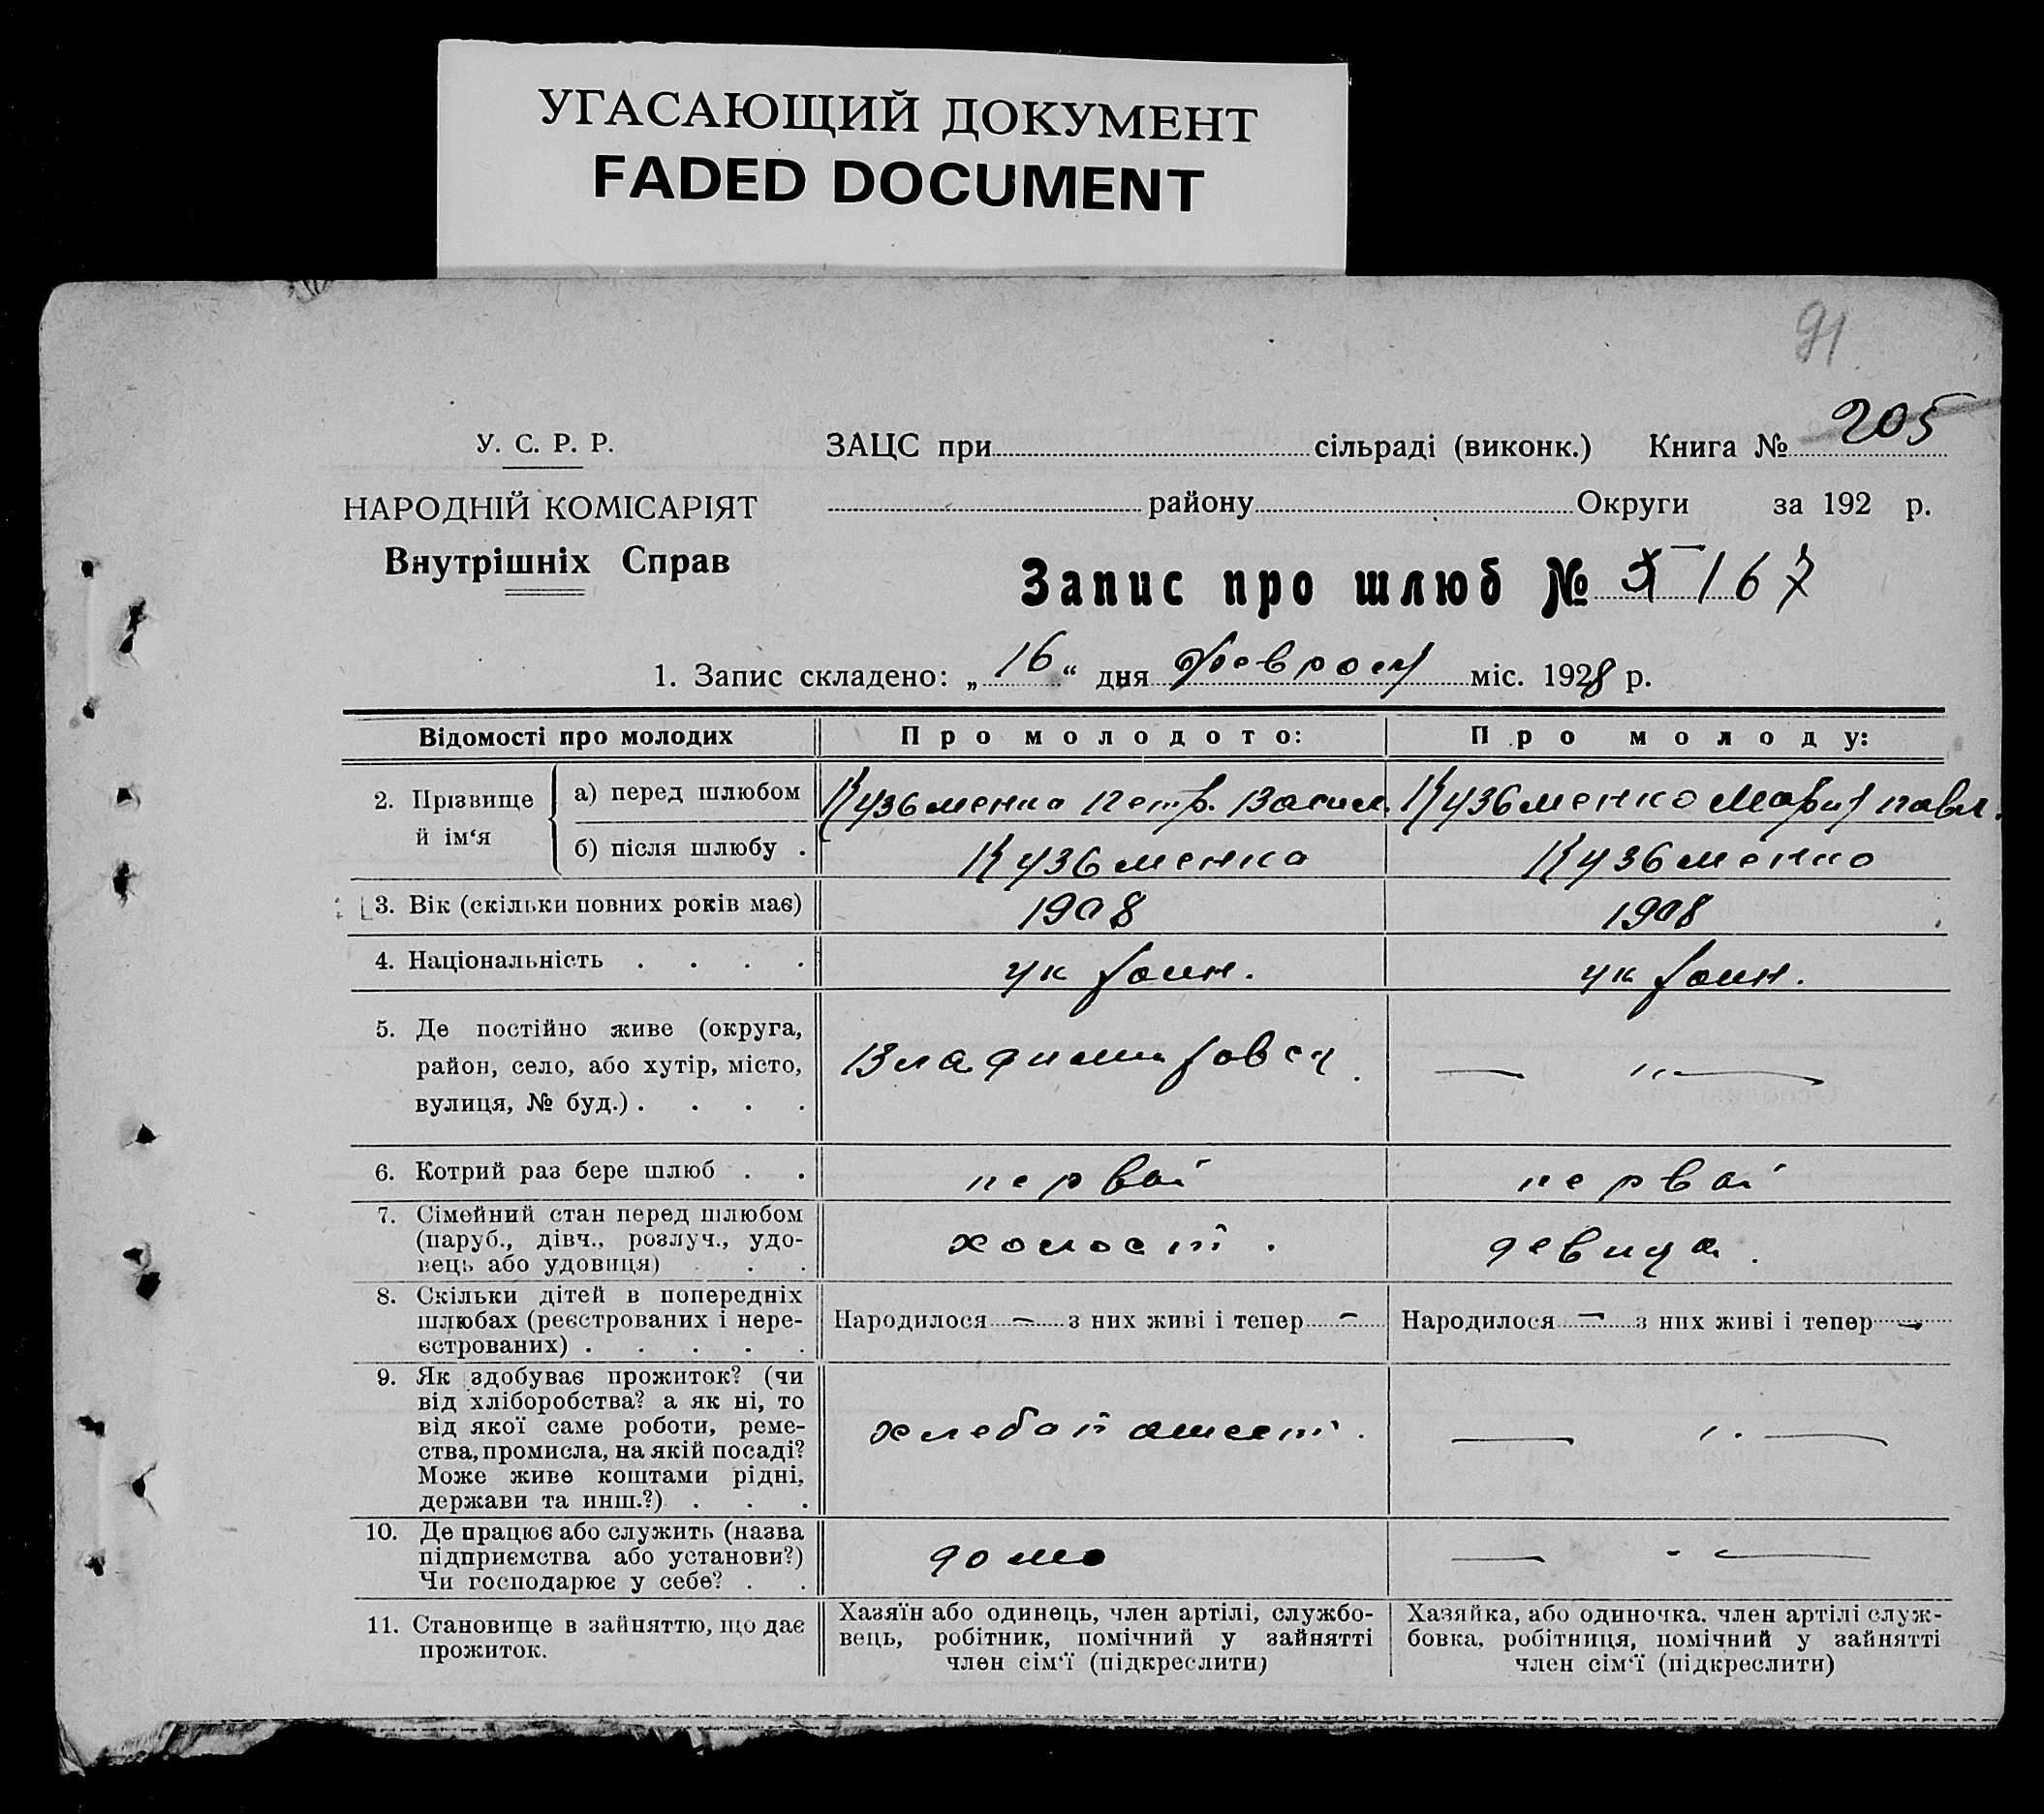 УГАСАЮЩИЙ ДОКУМЕНТ
FADED DOCUMENT
91
У. С. Р. Р.
НАРОДНІЙ КОМІСАРІЯТ
Внутрішніх Справ
ЗАЦС при сільраді (виконк.) Книга № 205
району Округи за 192 р.
Запис про шлюб № 167
1. Запис складено: „16“ дня февраля міс. 1928 р.
Відомості про молодих
Про молодого:
Про молоду:
2. Прізвище й ім‘я
а) перед шлюбом
Кузьменко Петр. Васил.
Кузьменко Мария Павл.
б) після шлюбу .
Кузьменко
Кузьменко
3. Вік (скільки повних років має)
1908
1908
4. Національність . . . .
украин.
украин.
5. Де постійно живе (округа,
район, село, або хутір, місто,
вулиця, № буд.) . . . .
— „ —
6. Котрий раз бере шлюб . .
первой
первой
7. Сімейний стан перед шлюбом
(паруб., дівч., розлуч., удо-
вець або удовиця) . . .
холост .
девица .
8. Скільки дітей в попередніх
шлюбах (реєстрованих і нере-
єстрованих) . . . . .
Народилося — з них живі і тепер —
Народилося — з них живі і тепер —
9. Як здобуває прожиток? (чи
від хліборобства? а як ні, то
від якої саме роботи, реме-
ства, промисла, на якій посаді?
Може живе коштами рідні,
держави та инш.?) . . .
— „ —
10. Де працює або служить (назва
підприємства або установи?)
Чи господарює у себе? . .
дома
— „ —
11. Становище в зайняттю, що дає
прожиток.
Хазяїн або одинець, член артілі, службо-
вець, робітник, помічний у зайнятті
член сім‘ї (підкреслити)
Хазяйка, або одиночка, член артілі служ-
бовка, робітниця, помічний у зайнятті
член сім‘ї (підкреслити)